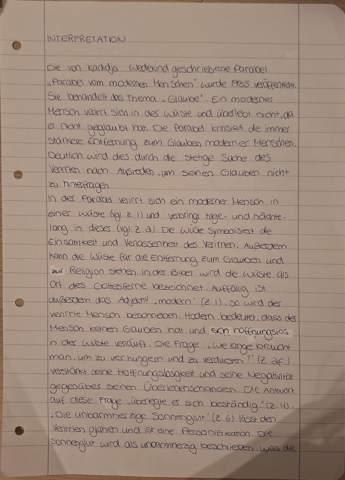 INTERPRETATION
Die von Kadidja Wedekind geschriebene Parabel
„Parabel vom modernen Menschen" wurde 1955 veröffentlicht.
Sie behandelt das Thema „Glaube". Ein moderner
Mensch verirrt sich in der Wüste und überlebt nicht, da
er nicht geglaubt hat. Die Parabel kritisiert die immer
stärkere Entfernung zum Glauben moderner Menschen.
Deutlich wird dies durch die stetige Suche des
Verirrten nach Ausreden, um seinen Glauben nicht
zu hinterfragen.
In der Parabel verirrt sich ein moderner Mensch in
einer Wüste (vgl. Z. 1) und verbringt tage- und nächte-
lang in dieser (vgl. Z. 2). Die Wüste symbolisiert die
Einsamkeit und Verlassenheit des Verirrten. Außerdem
kann die Wüste für die Entfernung zum Glauben und
zur Religion stehen. In der Bibel wird die Wüste als
Ort des Gottesferne bezeichnet. Auffällig ist
außerdem das Adjektiv „modern" (Z. 1). So wird der
verirrte Mensch beschrieben. Modern bedeutet, dass der
Mensch keinen Glauben hat und sich hoffnungslos
in der Wüste verläuft. Die Frage „Wie lange braucht
man, um zu verhungern und zu verdursten?" (Z. 2f.)
verstärkt seine Hoffnungslosigkeit und seine Negativität
gegenüber seinen Überlebenschancen. Die Antwort
auf diese Frage „überlegte er sich beständig" (Z. 4).
„Die unbarmherzige Sonnenglut" (Z. 6) lässt den
Verirrten und ist eine Personifikation. Die
Sonnenglut wird als unbarmherzig beschrieben, was die